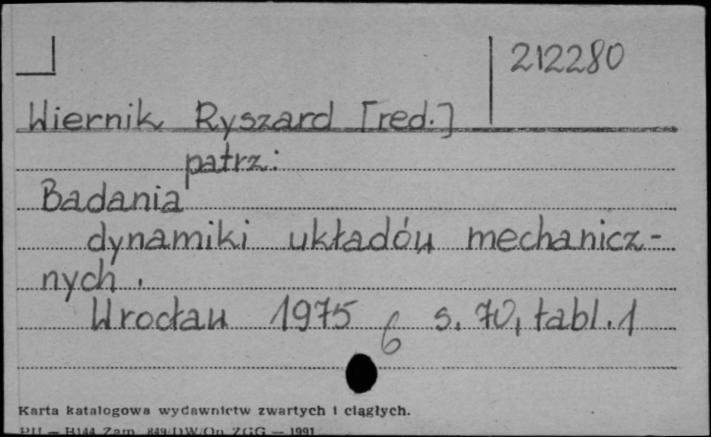 212280
Wiernik Ryszard [red.]
patrz:
Badania
dynamiki układów mechanicz-
nych.
Wrocław 1975 s. 70, tabl. 1
6
Karta katalogowa wydawnictw zwartych i ciągłych.
PU — H144 Zam. 849/DW/On ZGG — 1991